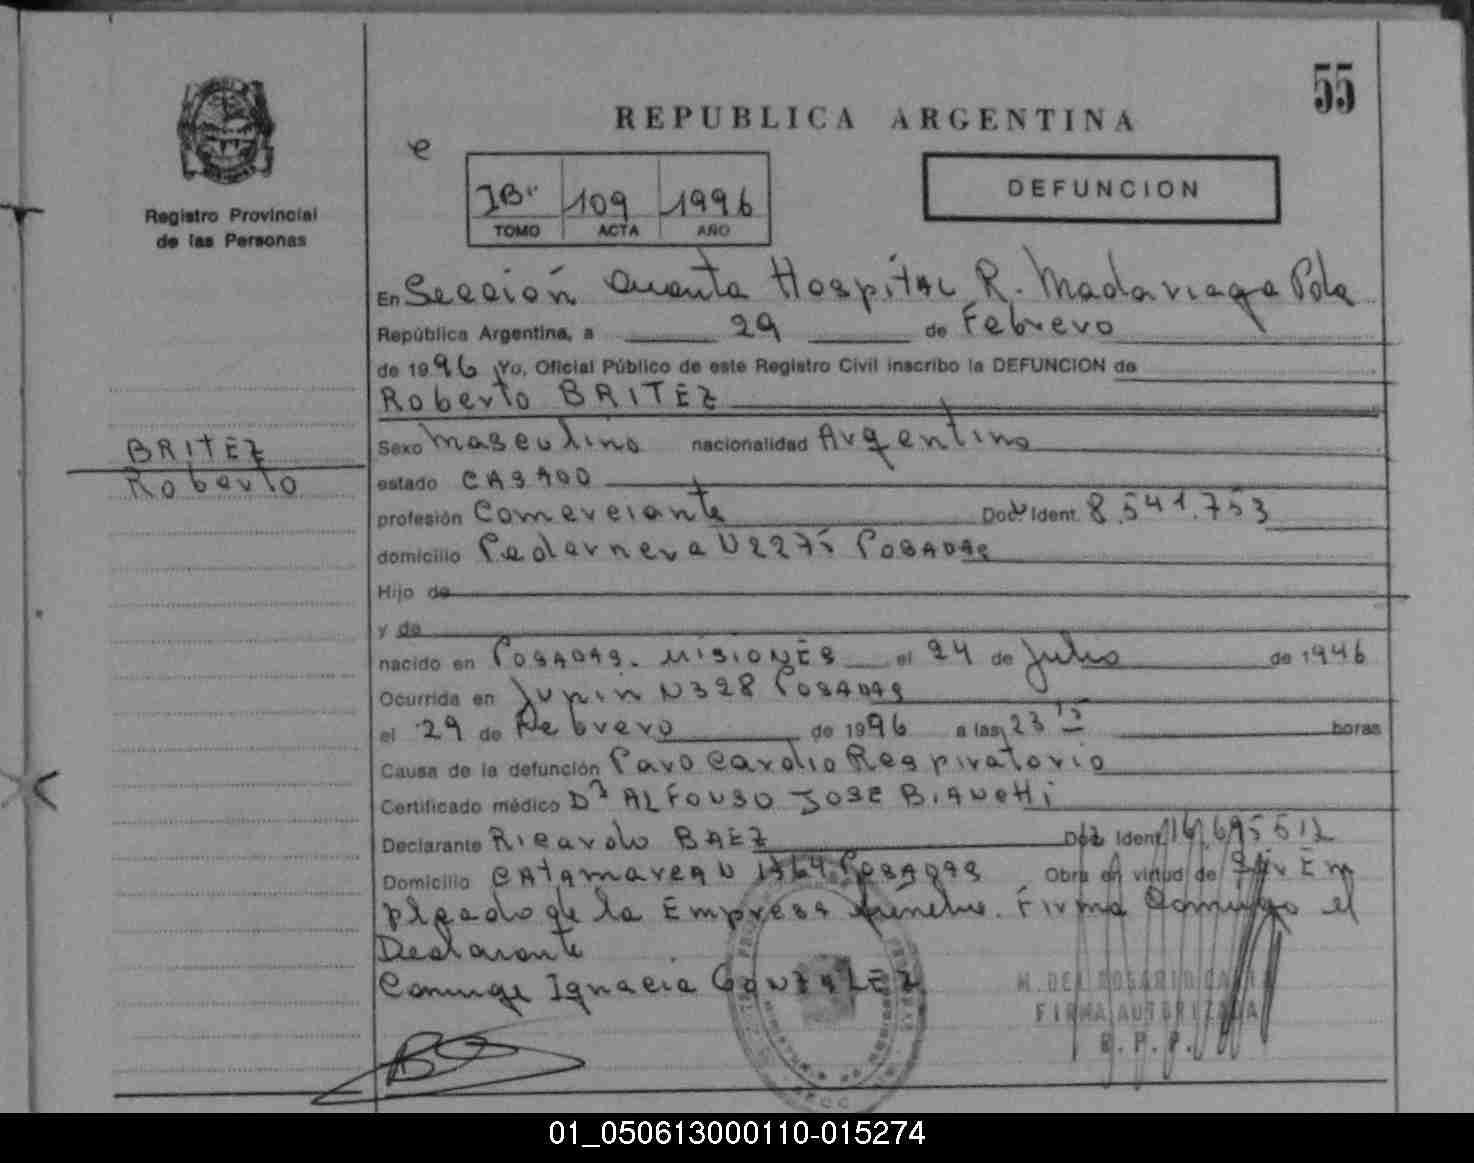 55
REPUBLICA ARGENTINA
DEFUNCION
109 1996
TOMO ACTA AÑO
Registro Provincial
de las Personas
BRITEZ
Roberto
En Sección Cuarta Hospital R. Madariaga Pdas
República Argentina, a 29 de Febrero
de 1996 Yo, Oficial Público de este Registro Civil inscribo la DEFUNCION de
Roberto BRITEZ
Sexo Masculino nacionalidad Argentino
estado CASADO
profesión Comerciante Doc. Ident. 8.541.753
domicilio Pedernera N 2275 POSADAS
Hijo de
y de
nacido en POSADAS. MISIONES el 24 de Julio de 1946
Ocurrida en Junin N 328 POSADAS
el 29 de Febrero de 1996 a las 23 15 horas
Causa de la defunción Paro Cardio Respiratorio
Certificado médico Dr ALFONSO JOSE BIANCHI
Declarante Ricardo BAEZ Doc. Ident. 16.695.512
Domicilio CATAMARCA N 1764 POSADAS Obra en virtud de Ser Em
pleado de la Empresa funebre. Firma Conmigo el
Declarante
Conyuge Ignacia GONZALEZ
M. DEL ROSARIO
FIRMA AUTORIZADA
R. P. P.
01_050613000110-015274